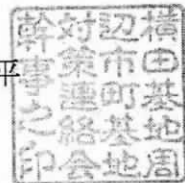 平
横田基地周
辺市町基地
対策連絡会
幹事之印